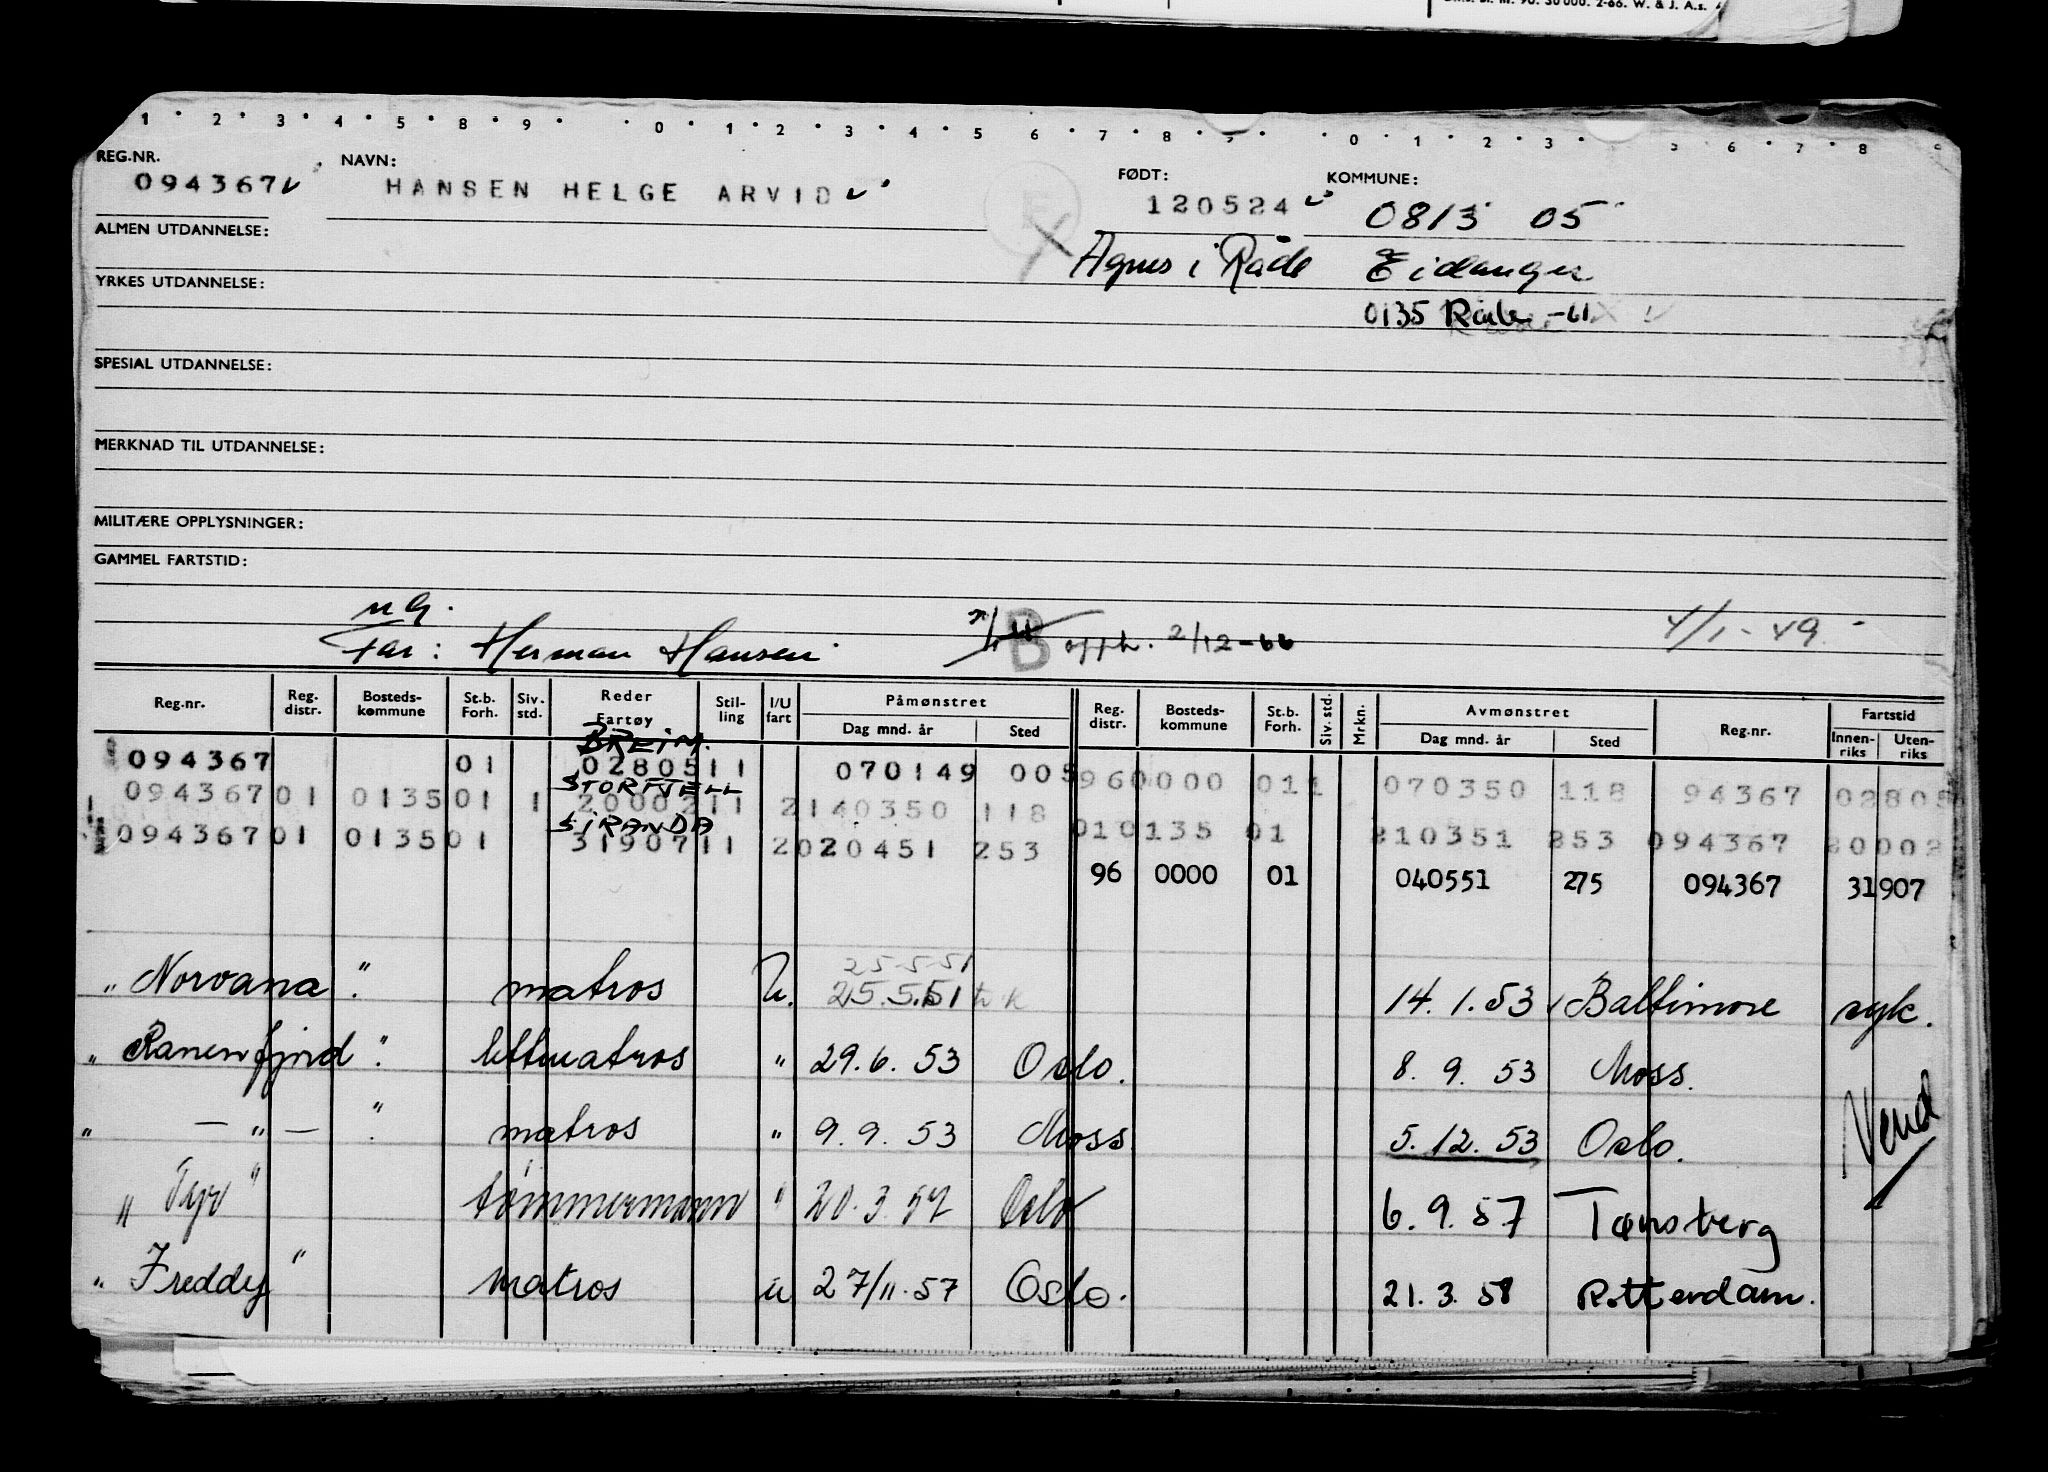 REG.NR. NAVN: FØDT: KOMMUNE:
094367 HANSEN HELGE ARVID 120524 0813 05
ALMEN UTDANNELSE: Agnes i Råde Eidanger
YRKES UTDANNELSE: 0135 Råde -61
SPESIAL UTDANNELSE:
MERKNAD TIL UTDANNELSE:
MILITÆRE OPPLYSNINGER:
GAMMEL FARTSTID:
Far: Herman Hansen B opph. 2/12-66 4/1-49
Reg.nr. Reg. distr. Bosteds-kommune St.b. Forh. Siv. std. Reder Fartøy Stil-ling I/U fart Påmønstret Dag mnd. år Sted Reg. distr. Bosteds-kommune St.b. Forh. Siv. std. Mrkn. Avmønstret Dag mnd. år Sted Reg.nr. Fartstid Innen-riks Uten-riks
BREIM.
094367 01 0280511 070149 005 960000 011 070350 118 94367 02805
STORFJELL
094367 01 0135 01 1 2000211 2140350 118 010135 01 210351 253 094367 20002
SIRANDA
094367 01 0135 01 3190711 2020451 253 96 0000 01 040551 275 094367 31907
25-5-51
" Norvana " matros U. 25.5.51 14.1.53 Baltimore syk.
" Ranenfjord " lettmatros " 29.6.53 Oslo. 8.9.53 Moss.
" — " — " matros " 9.9.53 Moss 5.12.53 Oslo. Vend
" Tyr " tømmermann " 20.3.57 Oslo 6.9.57 Tønsberg
" Freddy " matros u 27/11.57 Oslo. 21.3.58 Rotterdam.